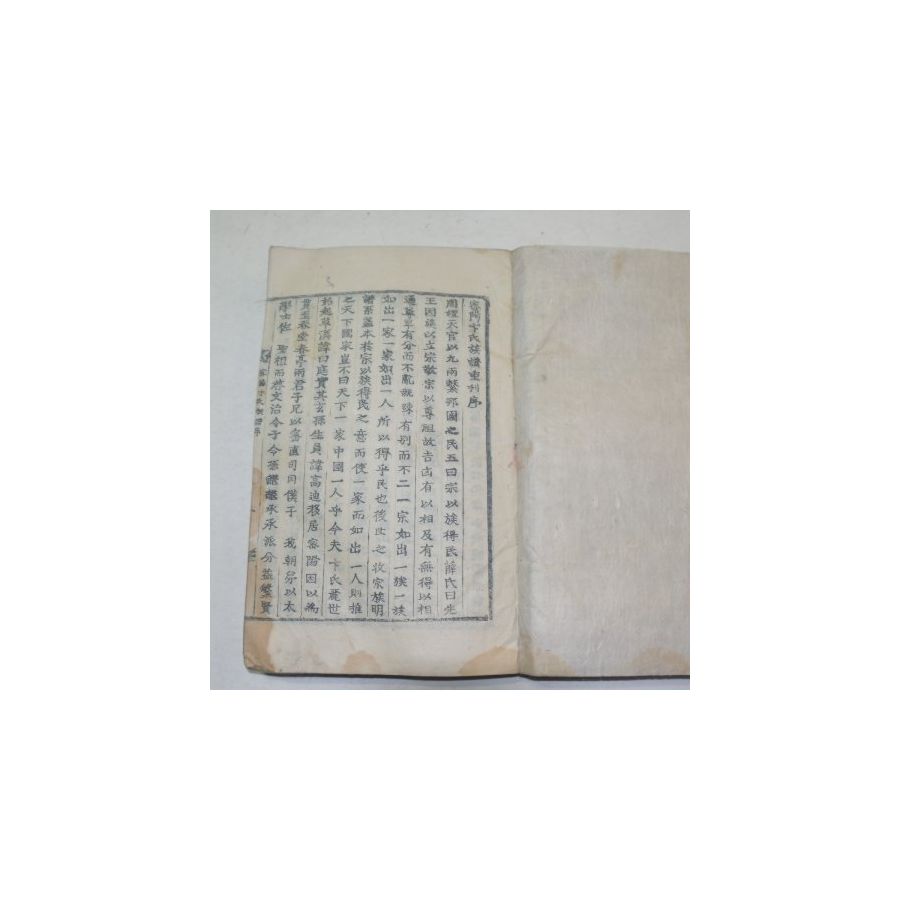 密陽卞氏族譜重刊序
周禮天官以九兩繫邦國之民五曰宗以族得民薛氏曰先
王因族以立宗敬宗以尊祖故吉凶有以相及有無得以相
通尊卑有分而不亂親踈有別而不二一宗如出一族一族
如出一家一家如出一人所以得乎民也後世之收宗族明
譜系盖本於宗以族得民之意而使一家而如出一人則推
之天下國家豈不曰天下一家中國一人乎今夫卞氏麗世
始起草溪諱曰庭實其玄孫生員諱高迪移居密陽因以為
貫生春堂春亭兩君子兄以密直司同僕于 我朝弟以太
學士佐 聖祖而啓文治令子令孫承承派分益繁賢
密陽卞氏族譜序